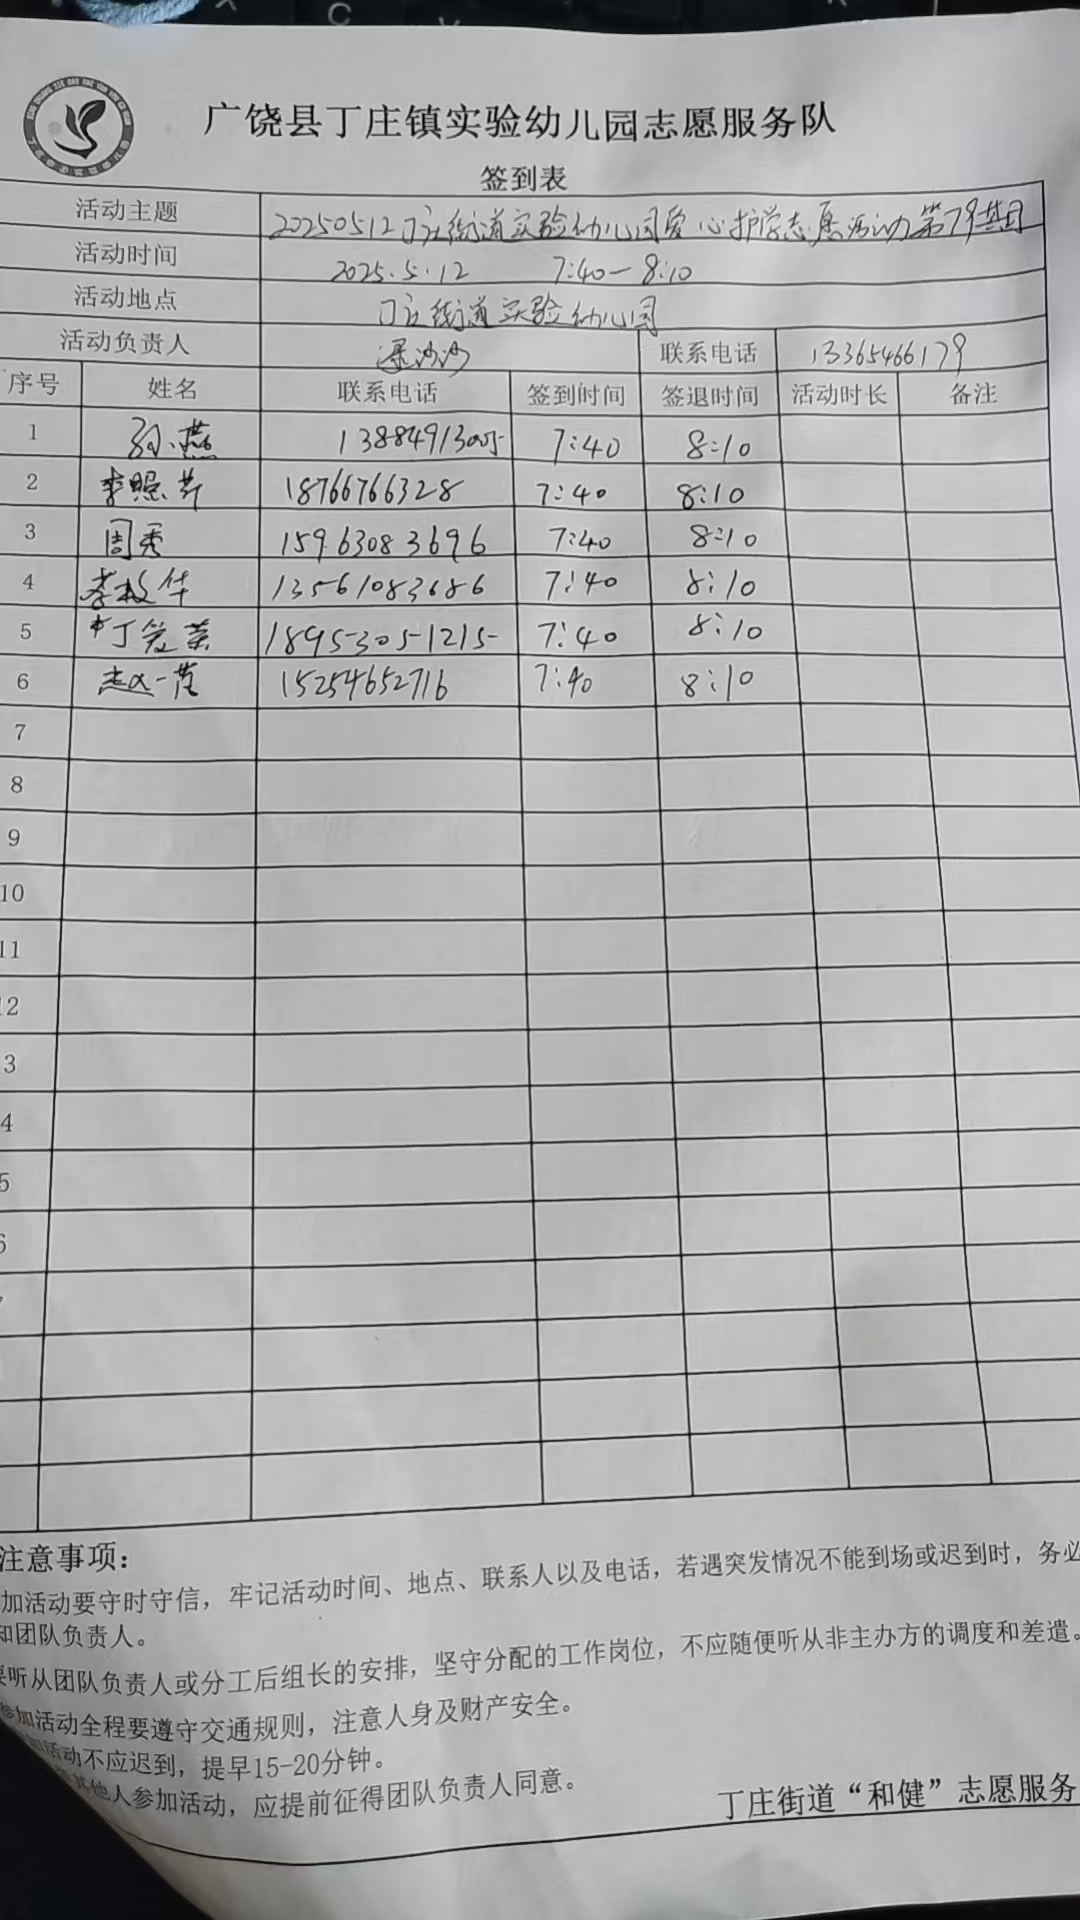 广饶县丁庄镇实验幼儿园志愿服务队
签到表
活动主题 20250512丁庄街道实验幼儿园爱心护学志愿活动第79期
活动时间 2025.5.12 7:40—8:10
活动地点 丁庄街道实验幼儿园
活动负责人 梁沙沙 联系电话 13365466179
序号 姓名 联系电话 签到时间 签退时间 活动时长 备注
1 孙燕 13884913005 7:40 8:10
2 李照芹 18766766328 7:40 8:10
3 周秀 15963083696 7:40 8:10
4 李校华 13561083686 7:40 8:10
5 丁爱荣 1895-305-1215 7:40 8:10
6 15254652716 7:40 8:10
7
8
9
10
11
12
3
4
5
6
注意事项：
加活动要守时守信，牢记活动时间、地点、联系人以及电话，若遇突发情况不能到场或迟到时，务必
知团队负责人。
要听从团队负责人或分工后组长的安排，坚守分配的工作岗位，不应随便听从非主办方的调度和差遣。
参加活动全程要遵守交通规则，注意人身及财产安全。
加活动不应迟到，提早15-20分钟。
其他人参加活动，应提前征得团队负责人同意。
丁庄街道“和健”志愿服务